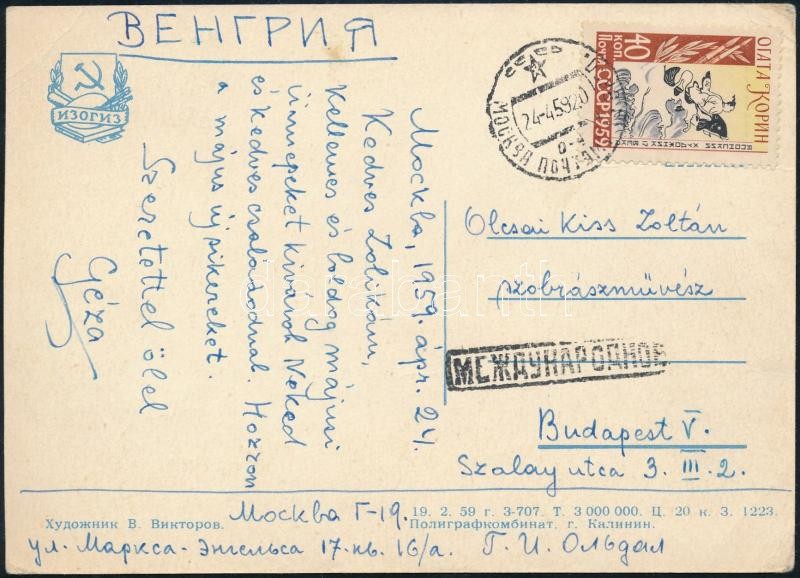 ВЕНГРИЯ
ИЗОГИЗ
ОГАТА КОРИН
40
КОП.
ПОЧТА СССР 1959
ЯПОНСКИЙ ХУДОЖНИК
МОСКВА
24-4.5920
Москва, 1959. ápr. 24.
Kedves Zolikám,
Kellemes és boldog májusi
ünnepeket kívánok Neked
és kedves családodnak. Hozzon
a május új sikereket.
Szeretettel ölel
Géza
Olcsai Kiss Zoltán
szobrászművész
МЕЖДУНАРОДНОЕ
Budapest V.
Szalay utca 3. III. 2.
darabanth
Художник В. Викторов.
19. 2. 59 г. З-707. Т. 3 000 000. Ц. 20 к. З. 1223.
Полиграфкомбинат, г. Калинин.
Москва Г-19.
ул. Маркса-Энгельса 17. кв. 16/а. Г. И. Ольдал